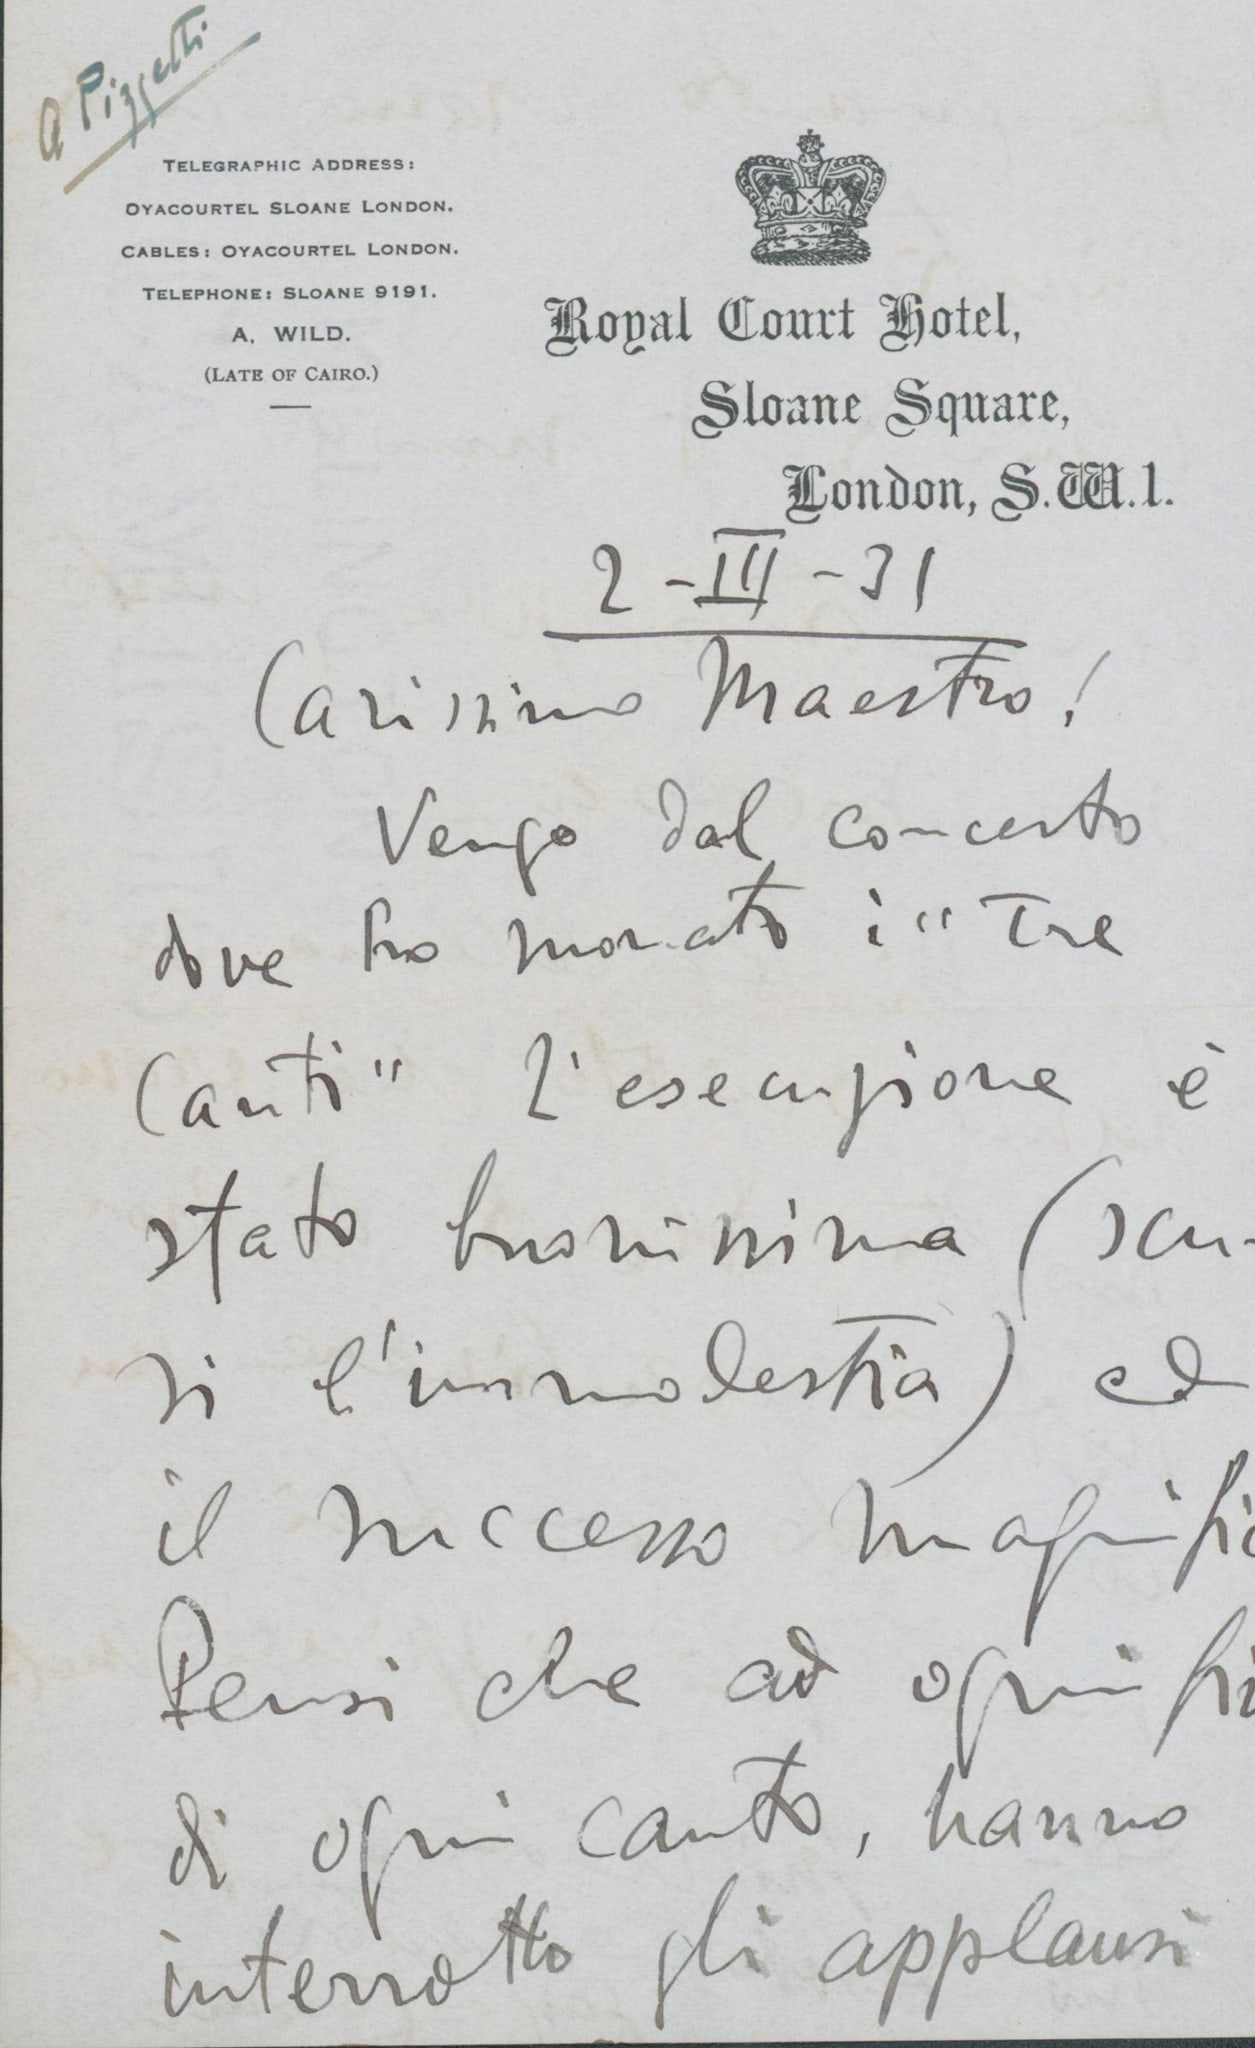 a Pizzetti
TELEGRAPHIC ADDRESS:
OYACOURTEL SLOANE LONDON.
CABLES: OYACOURTEL LONDON.
TELEPHONE: SLOANE 9191.
A. WILD.
(LATE OF CAIRO.)
Royal Court Hotel,
Sloane Square,
London, S.W.1.
2-III-31
Carissimo Maestro!
Vengo dal concerto
dove ho suonato i "Tre
Canti" L'esecuzione è
stato buonissima (scu-
si l'immodestia) ed
il successo magnific
Pensi che ad ogni fi
di ogni canto, hanno
interrotto gli applausi